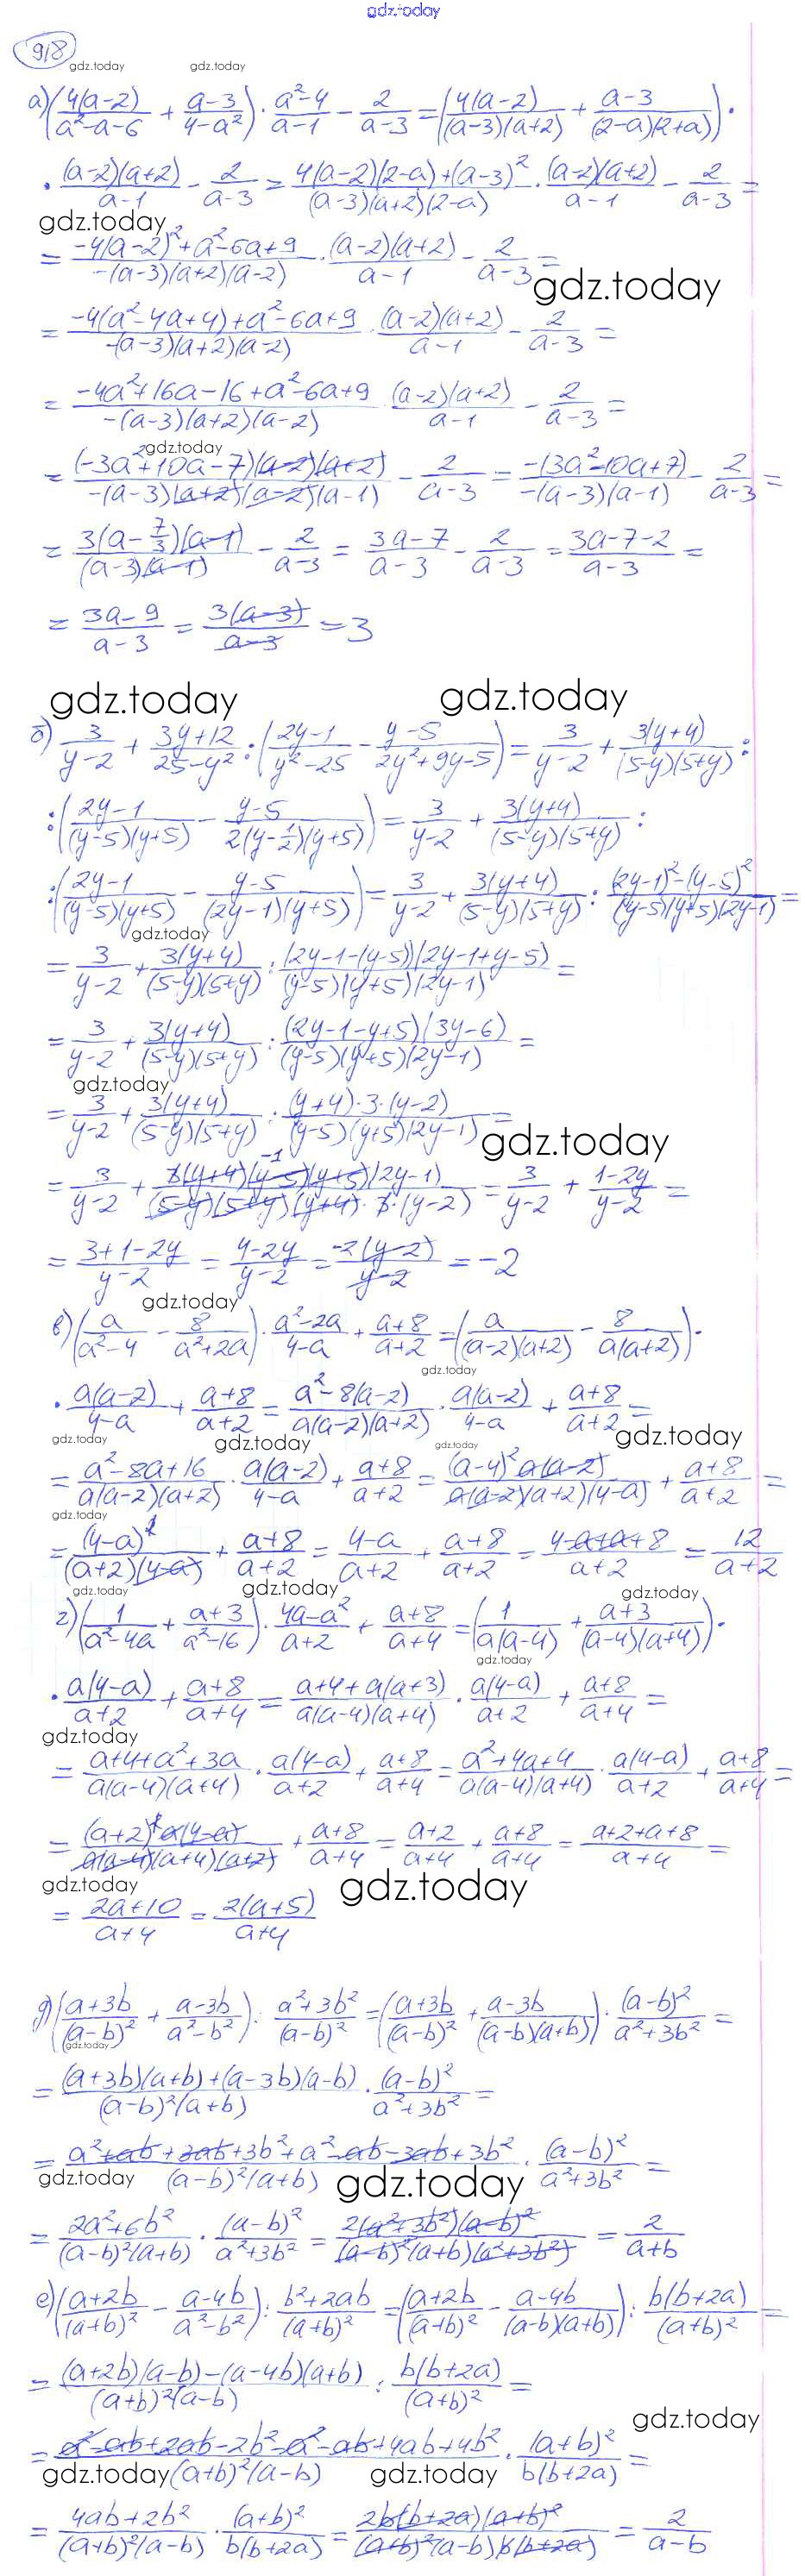 gdz.today
918
gdz.today gdz.today
а) (4(a-2)/(a²-a-6) + (a-3)/(4-a²)) · (a²-4)/(a-1) - 2/(a-3) = (4(a-2)/((a-3)(a+2)) + (a-3)/((2-a)(2+a))) ·
· (a-2)(a+2)/(a-1) - 2/(a-3) = (4(a-2)(2-a)+(a-3)²)/((a-3)(a+2)(2-a)) · (a-2)(a+2)/(a-1) - 2/(a-3) =
gdz.today
= (-4(a-2)²+a²-6a+9)/(-(a-3)(a+2)(a-2)) · (a-2)(a+2)/(a-1) - 2/(a-3) =
gdz.today
= (-4(a²-4a+4)+a²-6a+9)/(-(a-3)(a+2)(a-2)) · (a-2)(a+2)/(a-1) - 2/(a-3) =
= (-4a²+16a-16+a²-6a+9)/(-(a-3)(a+2)(a-2)) · (a-2)(a+2)/(a-1) - 2/(a-3) =
gdz.today
= (-3a²+10a-7)(a-2)(a+2)/(-(a-3)(a+2)(a-2)(a-1)) - 2/(a-3) = -(3a²-10a+7)/(-(a-3)(a-1)) - 2/(a-3) =
= 3(a-7/3)(a-1)/((a-3)(a-1)) - 2/(a-3) = (3a-7)/(a-3) - 2/(a-3) = (3a-7-2)/(a-3) =
= (3a-9)/(a-3) = 3(a-3)/(a-3) = 3
gdz.today gdz.today
б) 3/(y-2) + (3y+12)/(25-y²) : ((2y-1)/(y²-25) - (y-5)/(2y²+9y-5)) = 3/(y-2) + 3(y+4)/((5-y)(5+y)) :
: ((2y-1)/((y-5)(y+5)) - (y-5)/(2(y-1/2)(y+5))) = 3/(y-2) + 3(y+4)/((5-y)(5+y)) :
: ((2y-1)/((y-5)(y+5)) - (y-5)/((2y-1)(y+5))) = 3/(y-2) + 3(y+4)/((5-y)(5+y)) : ((2y-1)²-(y-5)²)/((y-5)(y+5)(2y-1)) =
gdz.today
= 3/(y-2) + 3(y+4)/((5-y)(5+y)) : (2y-1-(y-5))(2y-1+y-5)/((y-5)(y+5)(2y-1)) =
= 3/(y-2) + 3(y+4)/((5-y)(5+y)) : (2y-1-y+5)(3y-6)/((y-5)(y+5)(2y-1)) =
gdz.today
= 3/(y-2) + 3(y+4)/((5-y)(5+y)) : (y+4)·3·(y-2)/((y-5)(y+5)(2y-1)) =
gdz.today
= 3/(y-2) + 3(y+4)(y-5)⁻¹(y+5)(2y-1)/((5-y)(5+y)(y+4)·3·(y-2)) = 3/(y-2) + (1-2y)/(y-2) =
= (3+1-2y)/(y-2) = (4-2y)/(y-2) = -2(y-2)/(y-2) = -2
gdz.today
в) (a/(a²-4) - 8/(a²+2a)) · (a²-2a)/(4-a) + (a+8)/(a+2) = (a/((a-2)(a+2)) - 8/(a(a+2))) ·
gdz.today
· a(a-2)/(4-a) + (a+8)/(a+2) = (a²-8(a-2))/(a(a-2)(a+2)) · a(a-2)/(4-a) + (a+8)/(a+2) =
gdz.today gdz.today gdz.today gdz.today
= (a²-8a+16)/(a(a-2)(a+2)) · a(a-2)/(4-a) + (a+8)/(a+2) = (a-4)²a(a-2)/(a(a-2)(a+2)(4-a)) + (a+8)/(a+2) =
gdz.today
= (4-a)²/((a+2)(4-a)) + (a+8)/(a+2) = (4-a)/(a+2) + (a+8)/(a+2) = (4-a+a+8)/(a+2) = 12/(a+2)
gdz.today gdz.today gdz.today
г) (1/(a²-4a) + (a+3)/(a²-16)) · (4a-a²)/(a+2) + (a+8)/(a+4) = (1/(a(a-4)) + (a+3)/((a-4)(a+4))) ·
gdz.today
· a(4-a)/(a+2) + (a+8)/(a+4) = (a+4+a(a+3))/(a(a-4)(a+4)) · a(4-a)/(a+2) + (a+8)/(a+4) =
gdz.today
= (a+4+a²+3a)/(a(a-4)(a+4)) · a(4-a)/(a+2) + (a+8)/(a+4) = (a²+4a+4)/(a(a-4)(a+4)) · a(4-a)/(a+2) + (a+8)/(a+4) =
= (a+2)²a(4-a)/(a(a-4)(a+4)(a+2)) + (a+8)/(a+4) = (a+2)/(a+4) + (a+8)/(a+4) = (a+2+a+8)/(a+4) =
gdz.today gdz.today
= (2a+10)/(a+4) = 2(a+5)/(a+4)
д) ((a+3b)/(a-b)² + (a-3b)/(a²-b²)) : (a²+3b²)/(a-b)² = ((a+3b)/(a-b)² + (a-3b)/((a-b)(a+b))) · (a-b)²/(a²+3b²) =
gdz.today
= ((a+3b)(a+b)+(a-3b)(a-b))/((a-b)²(a+b)) · (a-b)²/(a²+3b²) =
= (a²+ab+3ab+3b²+a²-ab-3ab+3b²)/((a-b)²(a+b)) · (a-b)²/(a²+3b²) =
gdz.today gdz.today
= (2a²+6b²)/((a-b)²(a+b)) · (a-b)²/(a²+3b²) = 2(a²+3b²)(a-b)²/((a-b)²(a+b)(a²+3b²)) = 2/(a+b)
е) ((a+2b)/(a+b)² - (a-4b)/(a²-b²)) : (b²+2ab)/(a+b)² = ((a+2b)/(a+b)² - (a-4b)/((a-b)(a+b))) : b(b+2a)/(a+b)² =
= ((a+2b)(a-b)-(a-4b)(a+b))/((a+b)²(a-b)) : b(b+2a)/(a+b)² =
gdz.today
= (a²-ab+2ab-2b²-a²-ab+4ab+4b²)/((a+b)²(a-b)) · (a+b)²/(b(b+2a)) =
gdz.today gdz.today
= (4ab+2b²)/((a+b)²(a-b)) · (a+b)²/(b(b+2a)) = 2b(b+2a)(a+b)²/((a+b)²(a-b)b(b+2a)) = 2/(a-b)